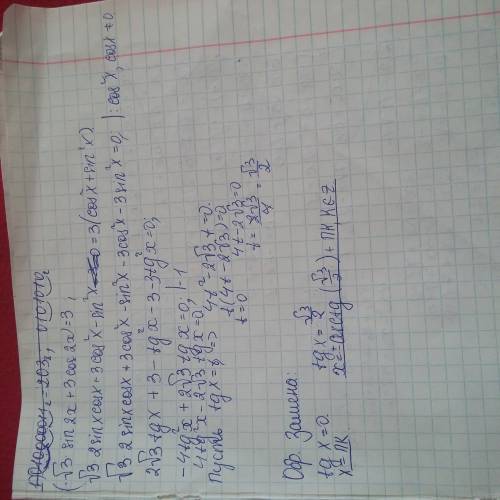 (√3 sin 2x + 3 cos 2x) = 3;
√3 2 sin x cos x + 3 cos²x - sin²x = 3(cos²x + sin²x)
√3 2 sin x cos x + 3 cos²x - sin²x - 3 cos²x - 3 sin²x = 0; | : cos²x, cos x ≠ 0.
2√3 tg x + 3 - tg²x - 3 - 3tg²x = 0;
-4tg²x + 2√3 tg x = 0; | · -1
4tg²x - 2√3 tg x = 0;
Пусть tg x = t, => 4t² - 2√3 t = 0.
t(4t - 2√3) = 0
t = 0 4t - 2√3 = 0
t = 2√3/4 = √3/2
Обр. замена:
tg x = 0 tg x = √3/2
x = πk x = arctg (√3/2) + πk, k ∈ z